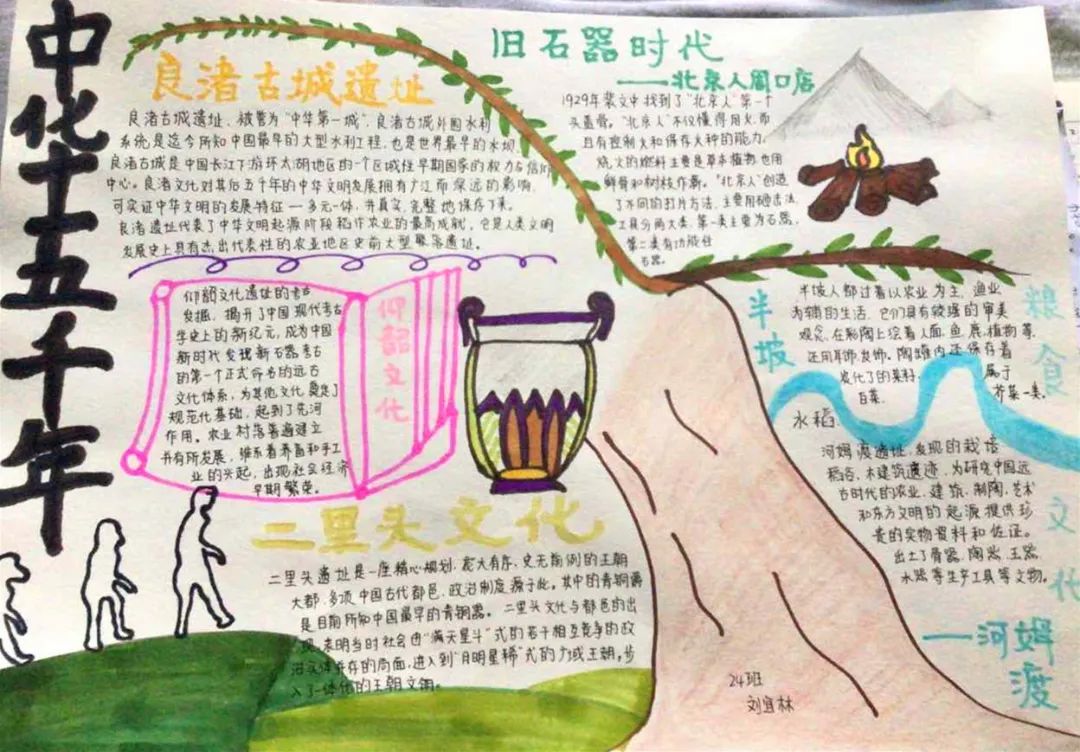 中华上下五千年
良渚古城遗址
良渚古城遗址、被誉为“中华第一城”,良渚古城外围水利
系统是迄今所知中国最早的大型水利工程,也是世界最早的水坝.
良渚古城是中国长江下游环太湖地区的一个区域性早期国家的权力与信仰
中心。良渚文化对其后五千年的中华文明发展拥有广泛而深远的影响.
可实证中华文明的发展特征—多元一体,并真实、完整地保存下来。
良渚遗址代表了中华文明起源阶段稻作农业的最高成就,它是人类文明
发展史上具有杰出代表性的农业地区史前大型聚落遗址。
旧石器时代
——北京人周口店
1929年裴文中找到了“北京人”第一个
头盖骨。“北京人”不仅懂得用火,而
且有控制火和保存火种的能力,
烧火的燃料主要是草本植物,也用
鲜骨和树枝作薪。“北京人”创造
了不同的打片方法,主要用砸击法,
工具分两大类,第一类主要为石器,
第二类有功能性
石器。
仰韶文化
仰韶文化遗址的考古
发掘,揭开了中国现代考古
学史上的新纪元,成为中国
新时代发现新石器考古
的第一个正式命名的远古
文化体系,为其他文化奠定了
规范化基础,起到了先河
作用。农业村落普遍建立
并有所发展,维系着养畜和手工
业的兴起,出现社会经济
早期繁荣。
二里头文化
二里头遗址是一座精心规划,庞大有序,史无前例的王朝
大都,多项中国古代都邑,政治制度源于此。其中的青铜爵
是目前所知中国最早的青铜器。二里头文化与都邑的出
现,表明当时社会由“满天星斗”式的若干相互竞争的政
治实体并存的局面,进入到“月明星稀”式的广域王朝,步
入了一体化的王朝文明。
半坡
半坡人都过着以农业为主,渔业
为辅的生活,它们具有较强的审美
观念,在彩陶上绘着人面、鱼、鹿、植物等,
还用耳饰、发饰。陶罐内还保存着
炭化了的菜籽, 属于
白菜, 芥菜一类。
粮食文化
——河姆渡
水稻
河姆渡遗址,发现的栽培
稻谷,木建筑遗迹,为研究中国远
古时代的农业、建筑、制陶、艺术
和东方文明的起源提供珍
贵的实物资料和佐证。
出土了骨器、陶器、玉器、
木器等生产工具等文物。
24班
刘宜林